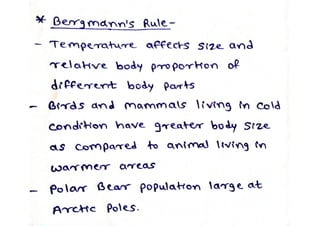 * Bergmann's Rule -
- Temperature affects size and
relative body proportion of
different body parts
- Birds and mammals living in cold
condition have greater body size
as compared to animal living in
warmer areas
- Polar Bear population large at
Arctic Poles.